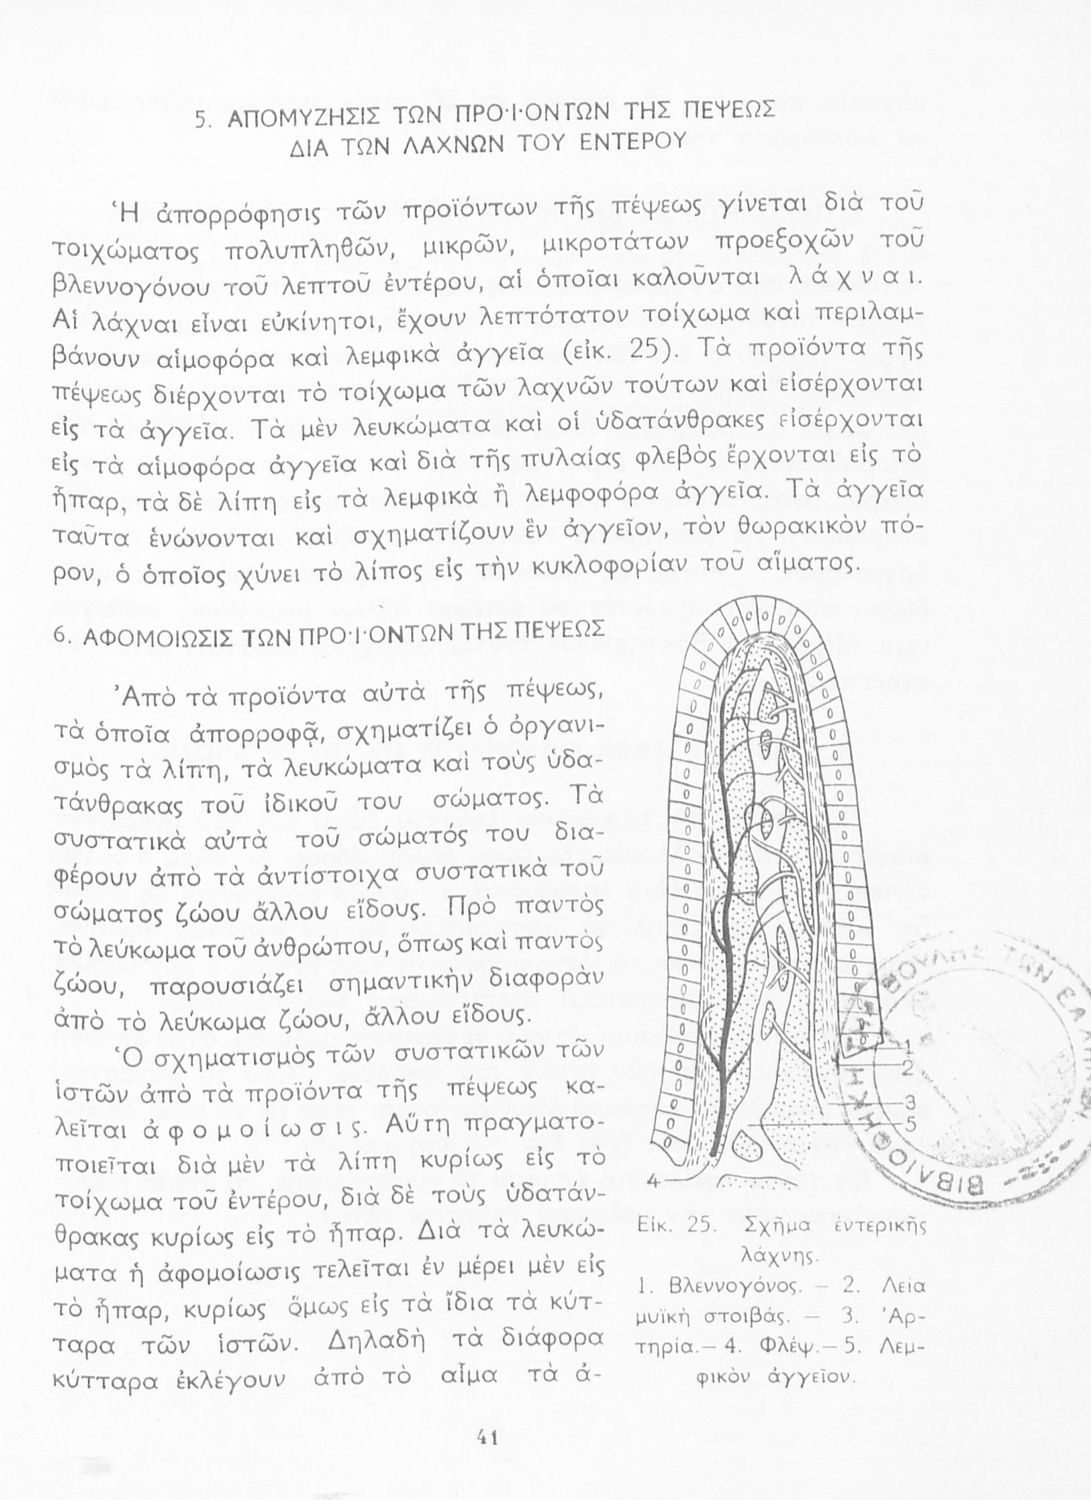 5. ΑΠΟΜΥΖΗΣΙΣ ΤΩΝ ΠΡΟ·Ι·ΟΝΤΩΝ ΤΗΣ ΠΕΨΕΩΣ
ΔΙΑ ΤΩΝ ΛΑΧΝΩΝ ΤΟΥ ΕΝΤΕΡΟΥ
Ἡ ἀπορρόφησις τῶν προϊόντων τῆς πέψεως γίνεται διὰ τοῦ
τοιχώματος πολυπληθῶν, μικρῶν, μικροτάτων προεξοχῶν τοῦ
βλεννογόνου τοῦ λεπτοῦ ἐντέρου, αἱ ὁποῖαι καλοῦνται λάχναι.
Αἱ λάχναι εἶναι εὐκίνητοι, ἔχουν λεπτότατον τοίχωμα καὶ περιλαμ-
βάνουν αἱμοφόρα καὶ λεμφικὰ ἀγγεῖα (εἰκ. 25). Τὰ προϊόντα τῆς
πέψεως διέρχονται τὸ τοίχωμα τῶν λαχνῶν τούτων καὶ εἰσέρχονται
εἰς τὰ ἀγγεῖα. Τὰ μὲν λευκώματα καὶ οἱ ὑδατάνθρακες εἰσέρχονται
εἰς τὰ αἱμοφόρα ἀγγεῖα καὶ διὰ τῆς πυλαίας φλεβὸς ἔρχονται εἰς τὸ
ἧπαρ, τὰ δὲ λίπη εἰς τὰ λεμφικὰ ἢ λεμφοφόρα ἀγγεῖα. Τὰ ἀγγεῖα
ταῦτα ἑνώνονται καὶ σχηματίζουν ἓν ἀγγεῖον, τὸν θωρακικὸν πό-
ρον, ὁ ὁποῖος χύνει τὸ λίπος εἰς τὴν κυκλοφορίαν τοῦ αἵματος.
6. ΑΦΟΜΟΙΩΣΙΣ ΤΩΝ ΠΡΟ·Ι·ΟΝΤΩΝ ΤΗΣ ΠΕΨΕΩΣ
Ἀπὸ τὰ προϊόντα αὐτὰ τῆς πέψεως,
τὰ ὁποῖα ἀπορροφᾷ, σχηματίζει ὁ ὀργανι-
σμὸς τὰ λίπη, τὰ λευκώματα καὶ τοὺς ὑδα-
τάνθρακας τοῦ ἰδικοῦ του σώματος. Τὰ
συστατικὰ αὐτὰ τοῦ σώματός του δια-
φέρουν ἀπὸ τὰ ἀντίστοιχα συστατικὰ τοῦ
σώματος ζώου ἄλλου εἴδους. Πρὸ παντὸς
τὸ λεύκωμα τοῦ ἀνθρώπου, ὅπως καὶ παντὸς
ζώου, παρουσιάζει σημαντικὴν διαφορὰν
ἀπὸ τὸ λεύκωμα ζώου, ἄλλου εἴδους.
Ὁ σχηματισμὸς τῶν συστατικῶν τῶν
ἱστῶν ἀπὸ τὰ προϊόντα τῆς πέψεως κα-
λεῖται ἀφομοίωσις. Αὕτη πραγματο-
ποιεῖται διὰ μὲν τὰ λίπη κυρίως εἰς τὸ
τοίχωμα τοῦ ἐντέρου, διὰ δὲ τοὺς ὑδατάν-
θρακας κυρίως εἰς τὸ ἧπαρ. Διὰ τὰ λευκώ-
ματα ἡ ἀφομοίωσις τελεῖται ἐν μέρει μὲν εἰς
τὸ ἧπαρ, κυρίως ὅμως εἰς τὰ ἴδια τὰ κύτ-
ταρα τῶν ἱστῶν. Δηλαδὴ τὰ διάφορα
κύτταρα ἐκλέγουν ἀπὸ τὸ αἷμα τὰ ἀ-
1
2
3
5
4
ΒΙΒΛΙΟΘΗΚΗ ΤΗΣ ΒΟΥΛΗΣ ΤΩΝ
Εἰκ. 25. Σχῆμα ἐντερικῆς
λάχνης.
1. Βλεννογόνος. — 2. Λεία
μυϊκὴ στοιβάς. — 3. Ἀρ-
τηρία.— 4. Φλέψ.— 5. Λεμ-
φικὸν ἀγγεῖον.
41